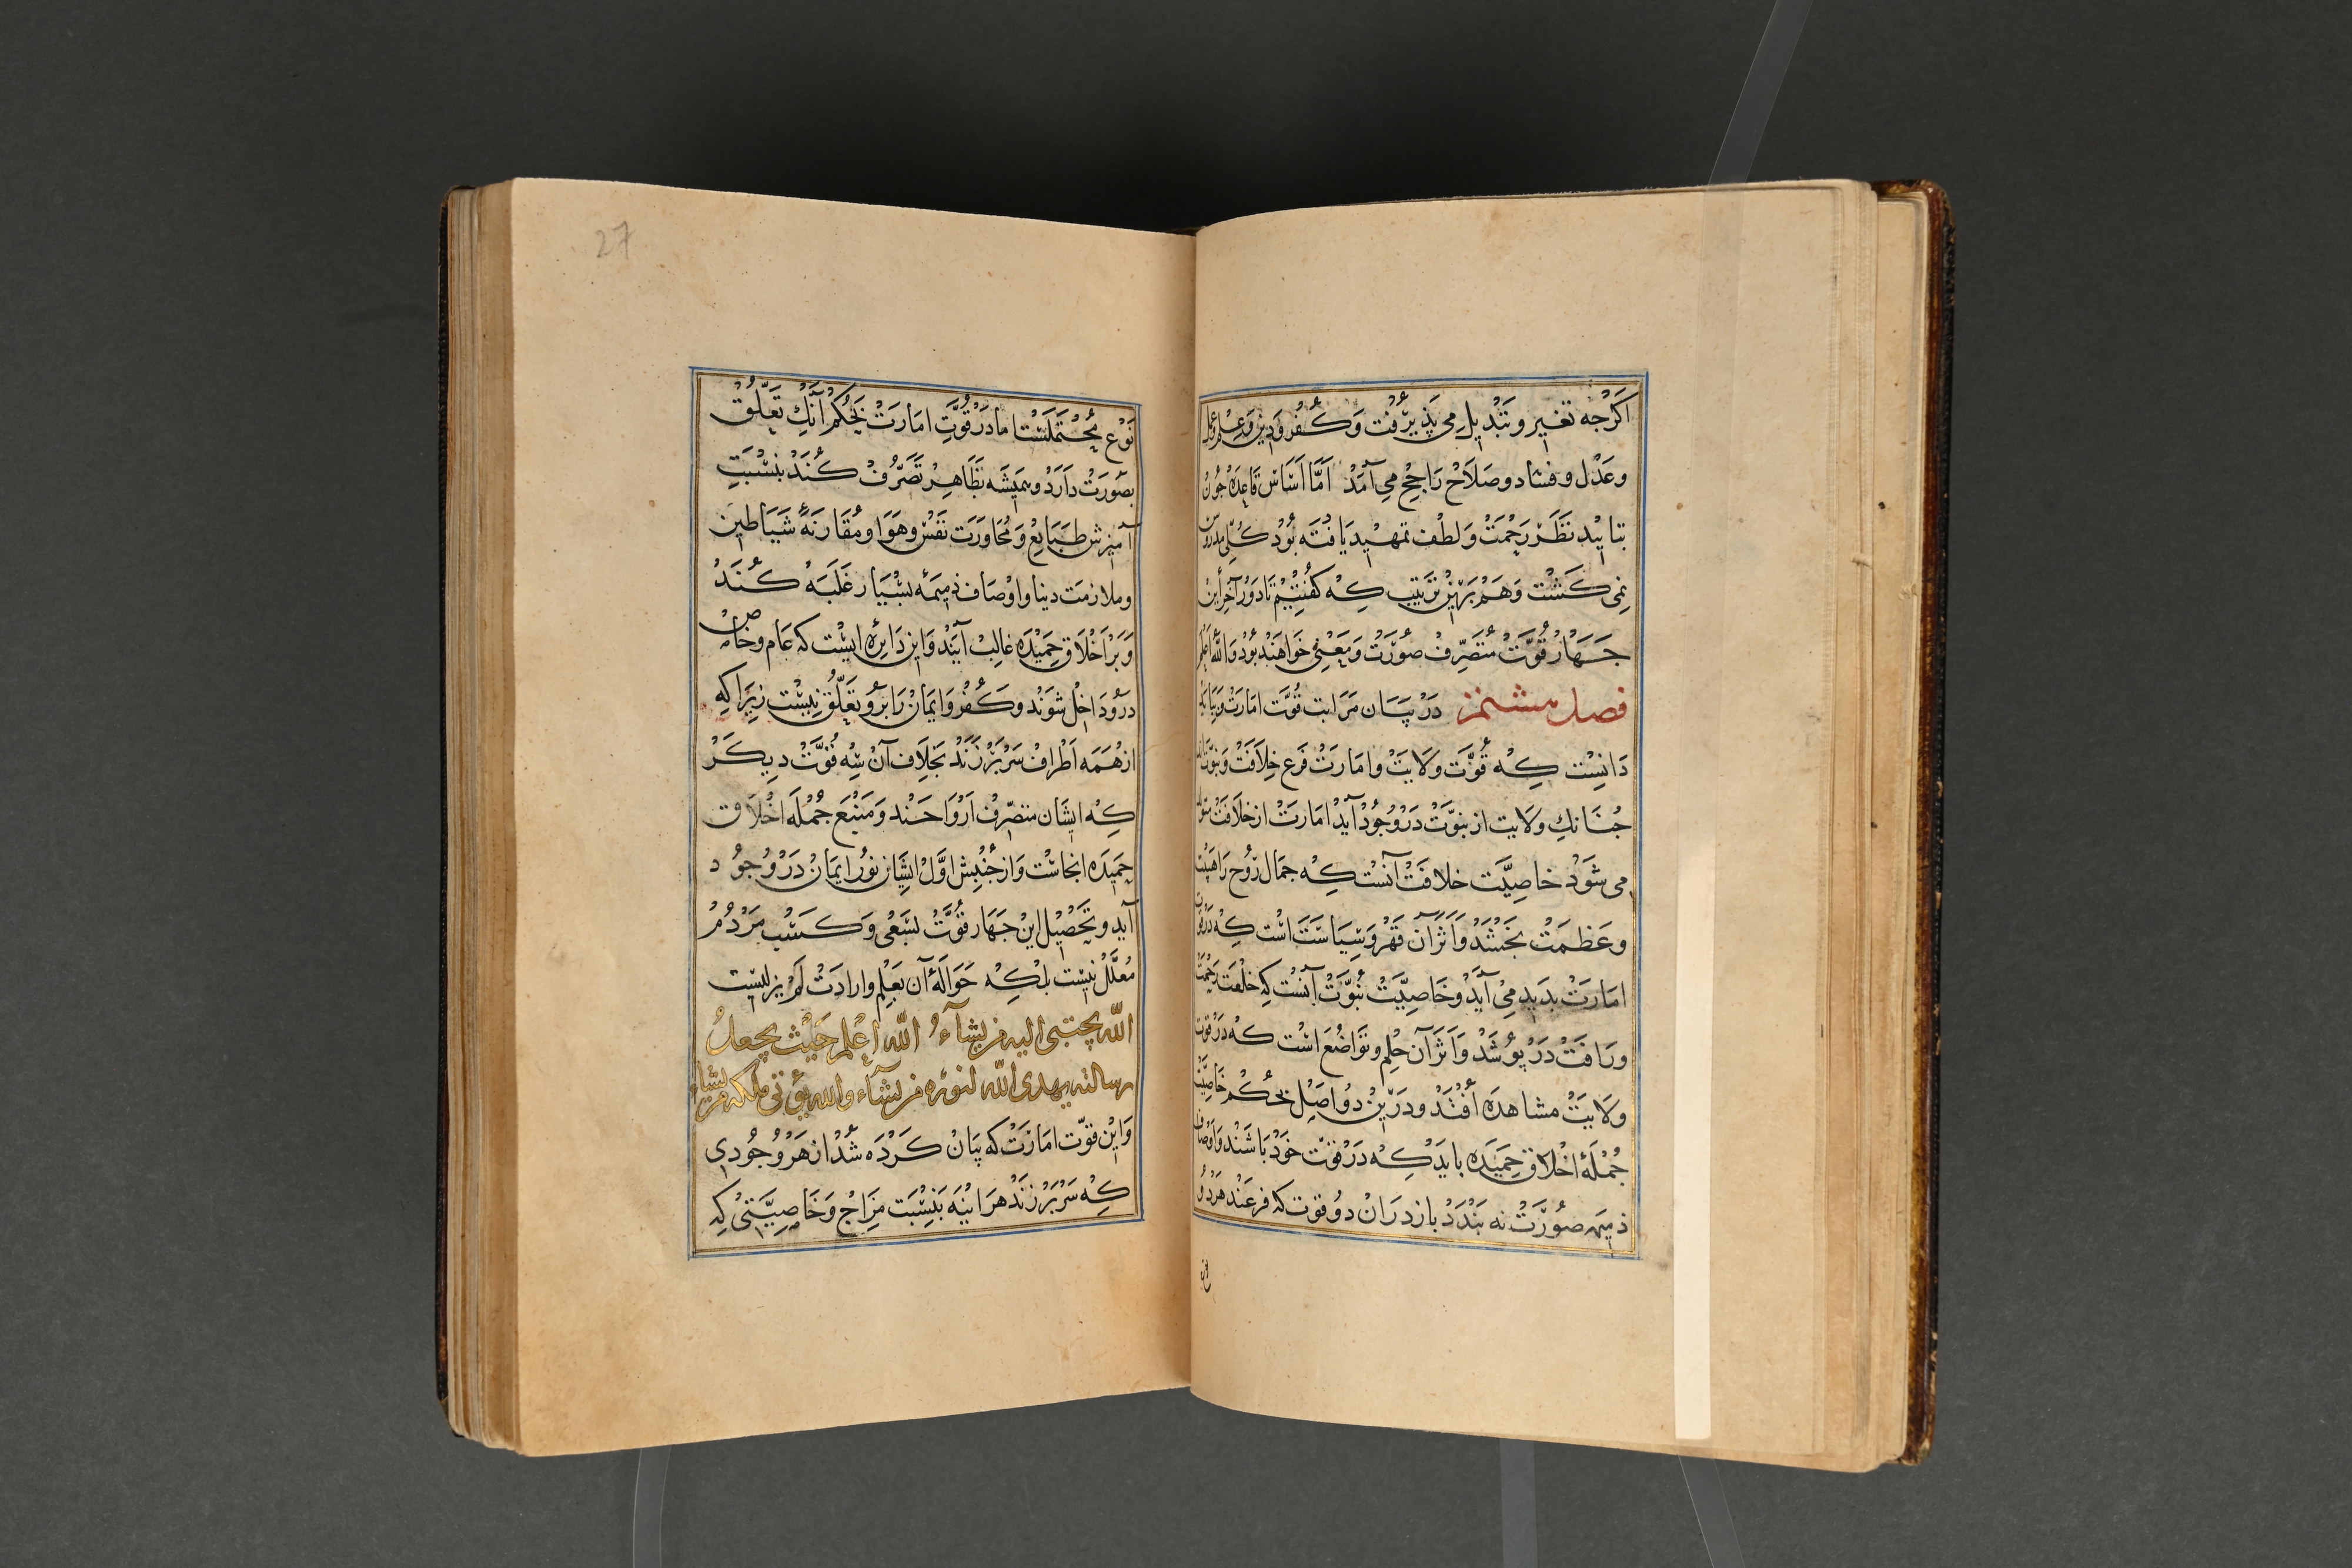 اگرچه تغییر و تبدیل می پذیرفت و کفر و دین و علم
و عدل و فساد و صلاح راجح می آمد اما اساس قاعده چون
بتایید نظر رحمت و لطف تمهید یافته بود کلی مدروس
نمی گشت و هم برین ترتیب که گفتیم تا دور آخر این
چهار قوت متصرف صورت و معنی خواهند بود والله اعلم
فصل هشتم در بیان مراتب قوت امارت
دانست که قوت ولایت و امارت فرع خلافت و نبوت
چنانک ولایت از نبوت در وجود آید امارت از خلافت
می شود خاصیت خلافت آنست که جمال روح را هیبت
و عظمت بخشد و اثر آن قهر و سیاست است که در قوت
امارت بدید می آید و خاصیت نبوت آنست که خلعت رحمت
و رافت در پوشد و اثر آن حلم و تواضع است که در قوت
ولایت مشاهده افتد و درین دو اصل بحکم خاصیت
جمله اخلاق حمیده باید که در قوت خود باشند و اوصاف
ذمیمه صورت نه بندد باز در ان دو قوت که فرعند هر دو
نوع
27
نوع محتملست اما در قوت امارت بحکم آنک تعلق
بصورت دارد و همیشه بظاهر تصرف کند بنسبت
آمیزش طبایع و مجاورت نفس و هوا و مقارنه شیاطین
و ملازمت دنیا و اوصاف ذمیمه بسیار غلبه کند
و بر اخلاق حمیده غالب آیند و این دایره ایست که عام و خاص
درو داخل شوند و کفر و ایمان را برو تعلق نیست زیرا که
از همه اطراف سر بر زند بخلاف آن سه قوت دیگر
که ایشان متصرف ارواحند و منبع جمله اخلاق
حمیده انجاست و از جنبش اول ایشان نور ایمان در وجود
آید و تحصیل این چهار قوت بسعی و کسب مردم
معلل نیست بلکه حواله آن بعلم و ارادت لم یزلیست
الله یجتبی الیه من یشآء الله اعلم حیث یجعل
رسالته یهدی الله لنوره من یشآء والله یؤتی ملکه من یشاء
و این قوت امارت که بیان کرده شد از هر وجودی
که سر بر زند هر آینه بنسبت مزاج و خاصیتی که